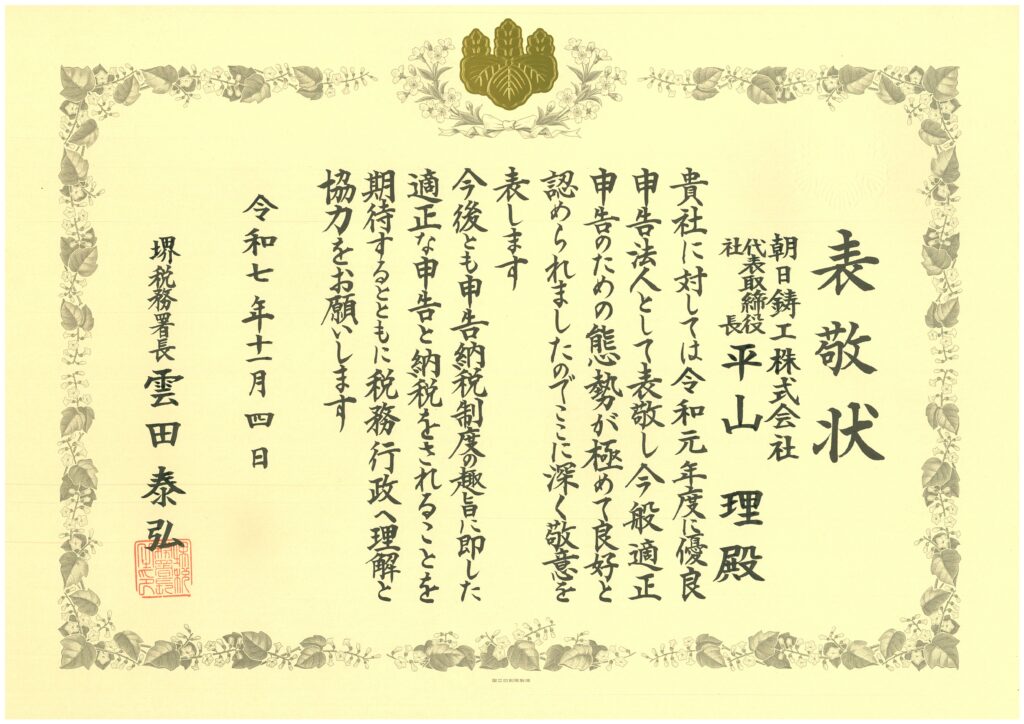 表敬状
朝日鋳工株式会社
代表取締役
社長
平山 理殿
貴社に対しては令和元年度に優良
申告法人として表敬し今般適正
申告のための態勢が極めて良好と
認められましたのでここに深く敬意を
表します
今後とも申告納税制度の趣旨に即した
適正な申告と納税をされることを
期待するとともに税務行政へ理解と
協力をお願いします
令和七年十一月四日
堺税務署長 雲田泰弘
国立印刷局製造